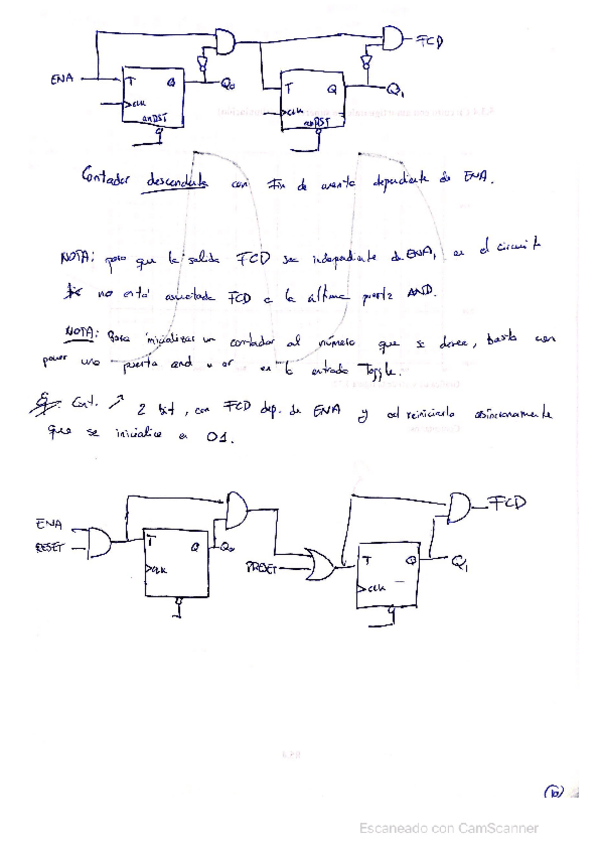 FCD
ENA T Q Q0 T Q Q1
CLK CLK
anRST anRST
Contador descendente con Fin de cuenta dependiente de ENA.
NOTA: para que la salida FCD sea independiente de ENA, en el circuito
no está conectada FCD a la última puerta AND.
NOTA: Para inicializar un contador al número que se desee, basta con
poner una puerta and u or en la entrada Toggle.
Ej. Cont. ↗ 2 bit, con FCD dep. de ENA y al reiniciarlo asincronamente
que se inicialice en 01.
FCD
ENA
RESET T Q Q0 PRESET T Q Q1
CLK CLK
10
Escaneado con CamScanner